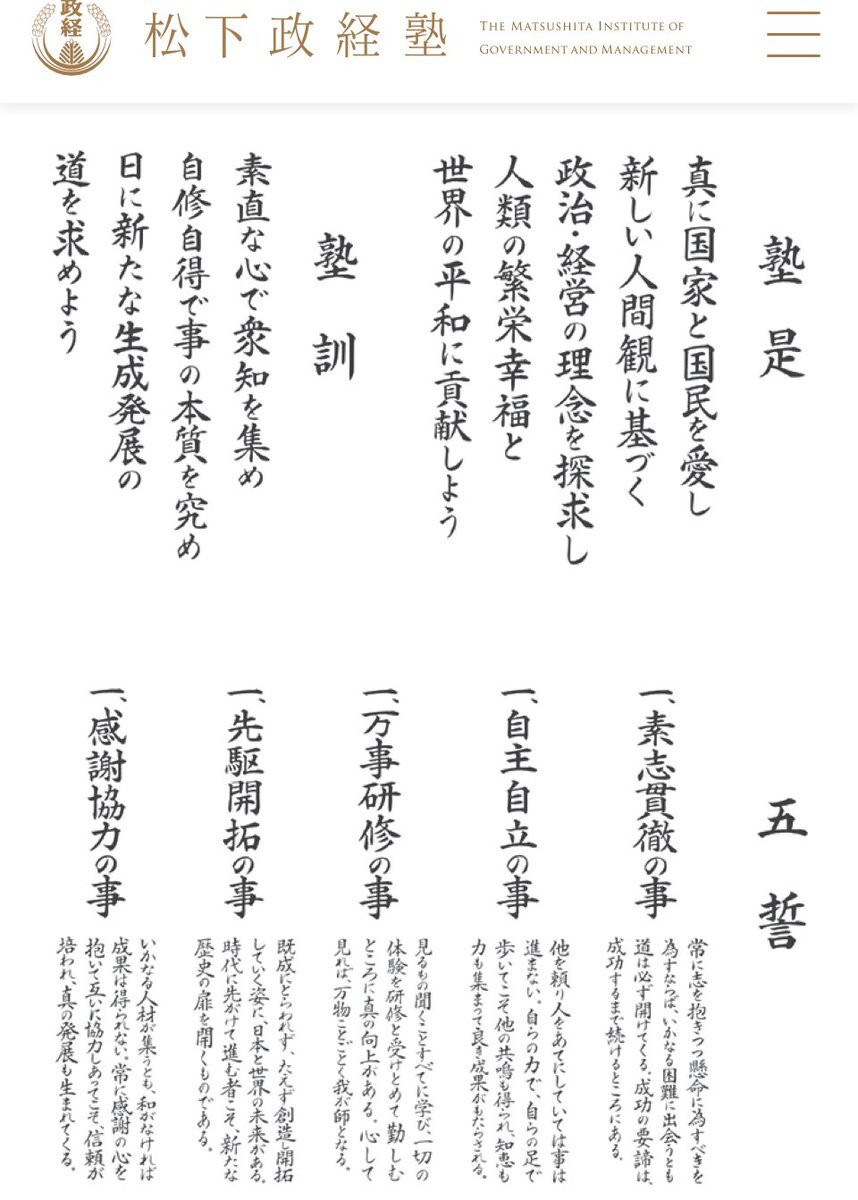 政経
松下政経塾
THE MATSUSHITA INSTITUTE OF
GOVERNMENT AND MANAGEMENT
塾是
真に国家と国民を愛し
新しい人間観に基づく
政治・経営の理念を探求し
人類の繁栄幸福と
世界の平和に貢献しよう
塾訓
素直な心で衆知を集め
自修自得で事の本質を究め
日に新たな生成発展の
道を求めよう
五誓
一、素志貫徹の事
常に志を抱きつつ懸命に為すべきを
為すならば、いかなる困難に出会うとも
道は必ず開けてくる。成功の要諦は、
成功するまで続けるところにある。
一、自主自立の事
他を頼り人をあてにしていては事は
進まない。自らの力で、自らの足で
歩いてこそ他の共鳴も得られ、知恵も
力も集まって良き成果がもたらされる。
一、万事研修の事
見るもの聞くことすべてに学び、一切の
体験を研修と受けとめて勤しむ
ところに真の向上がある。心して
見れば、万物ことごとく我が師となる。
一、先駆開拓の事
既成にとらわれず、たえず創造し開拓
していく姿に、日本と世界の未来がある。
時代に先がけて進む者こそ、新たな
歴史の扉を開くものである。
一、感謝協力の事
いかなる人材が集うとも、和がなければ
成果は得られない。常に感謝の心を
抱いて互いに協力しあってこそ、信頼が
培われ、真の発展も生まれてくる。